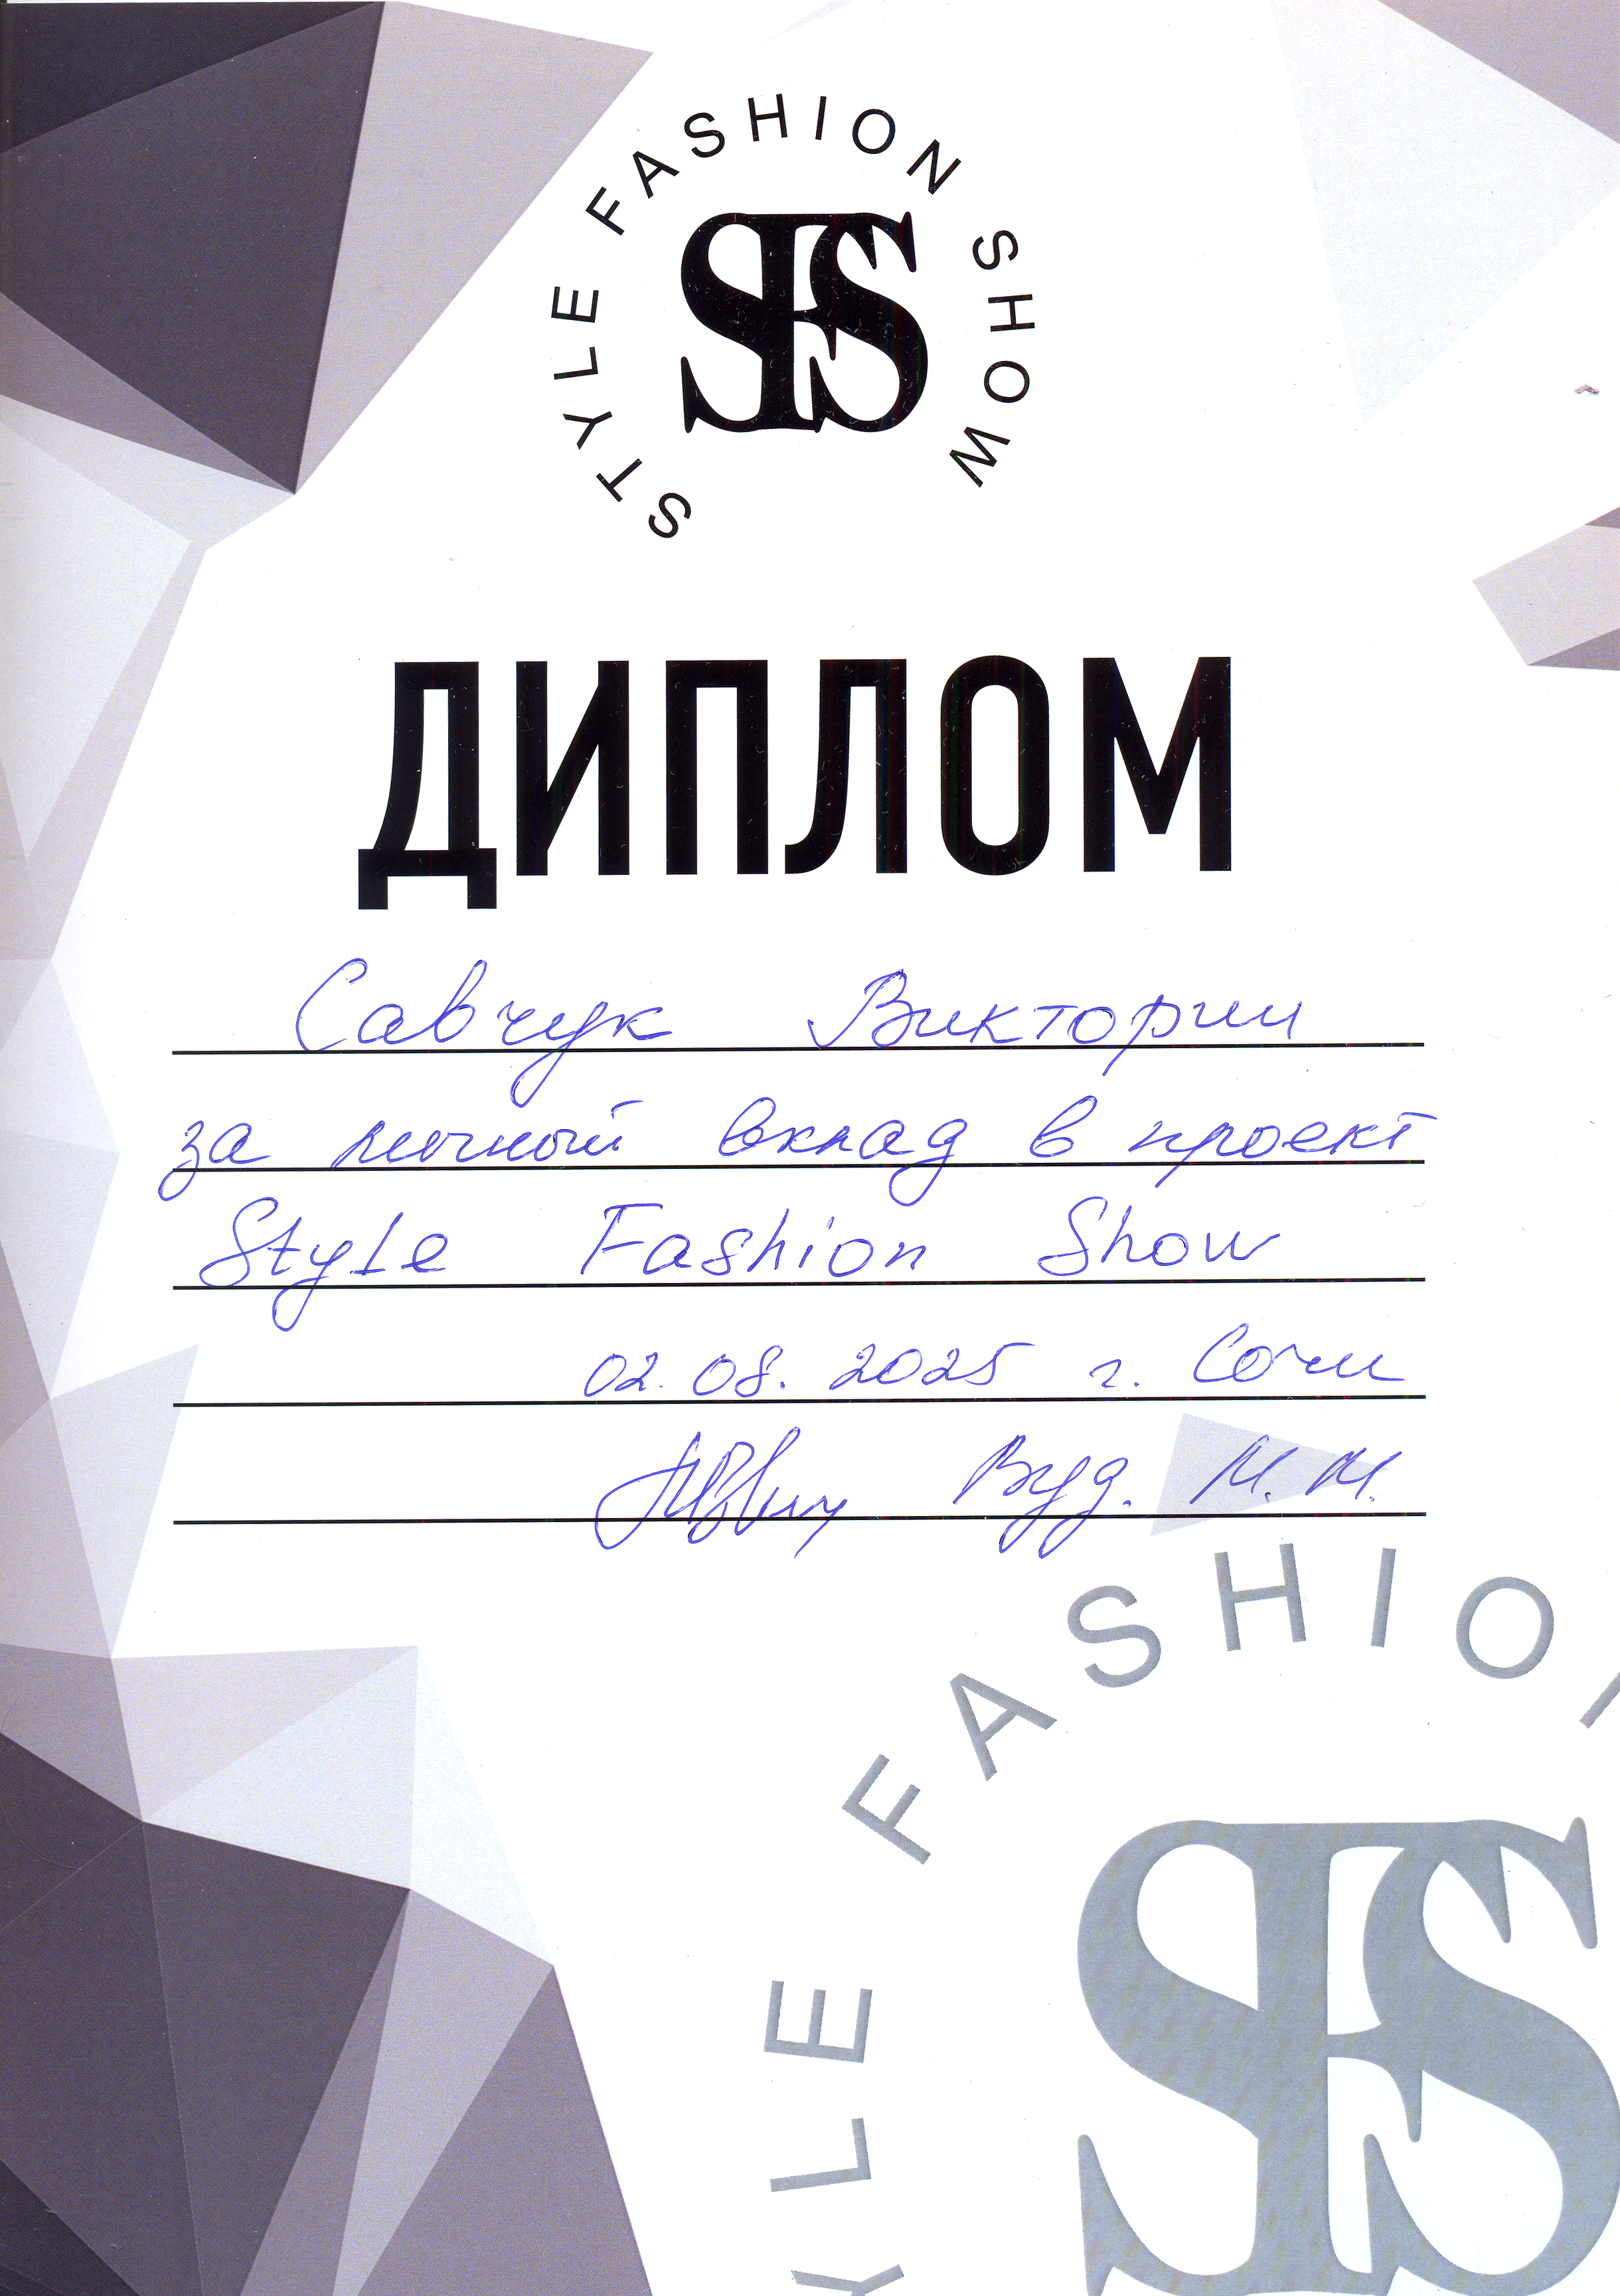 STYLE FASHION SHOW
SFS
ДИПЛОМ
Савчук Виктории
за личный вклад в проект
Style Fashion Show
02.08.2025 г. Сочи
Вуд. М. М.
YLE FASHIO
SFS